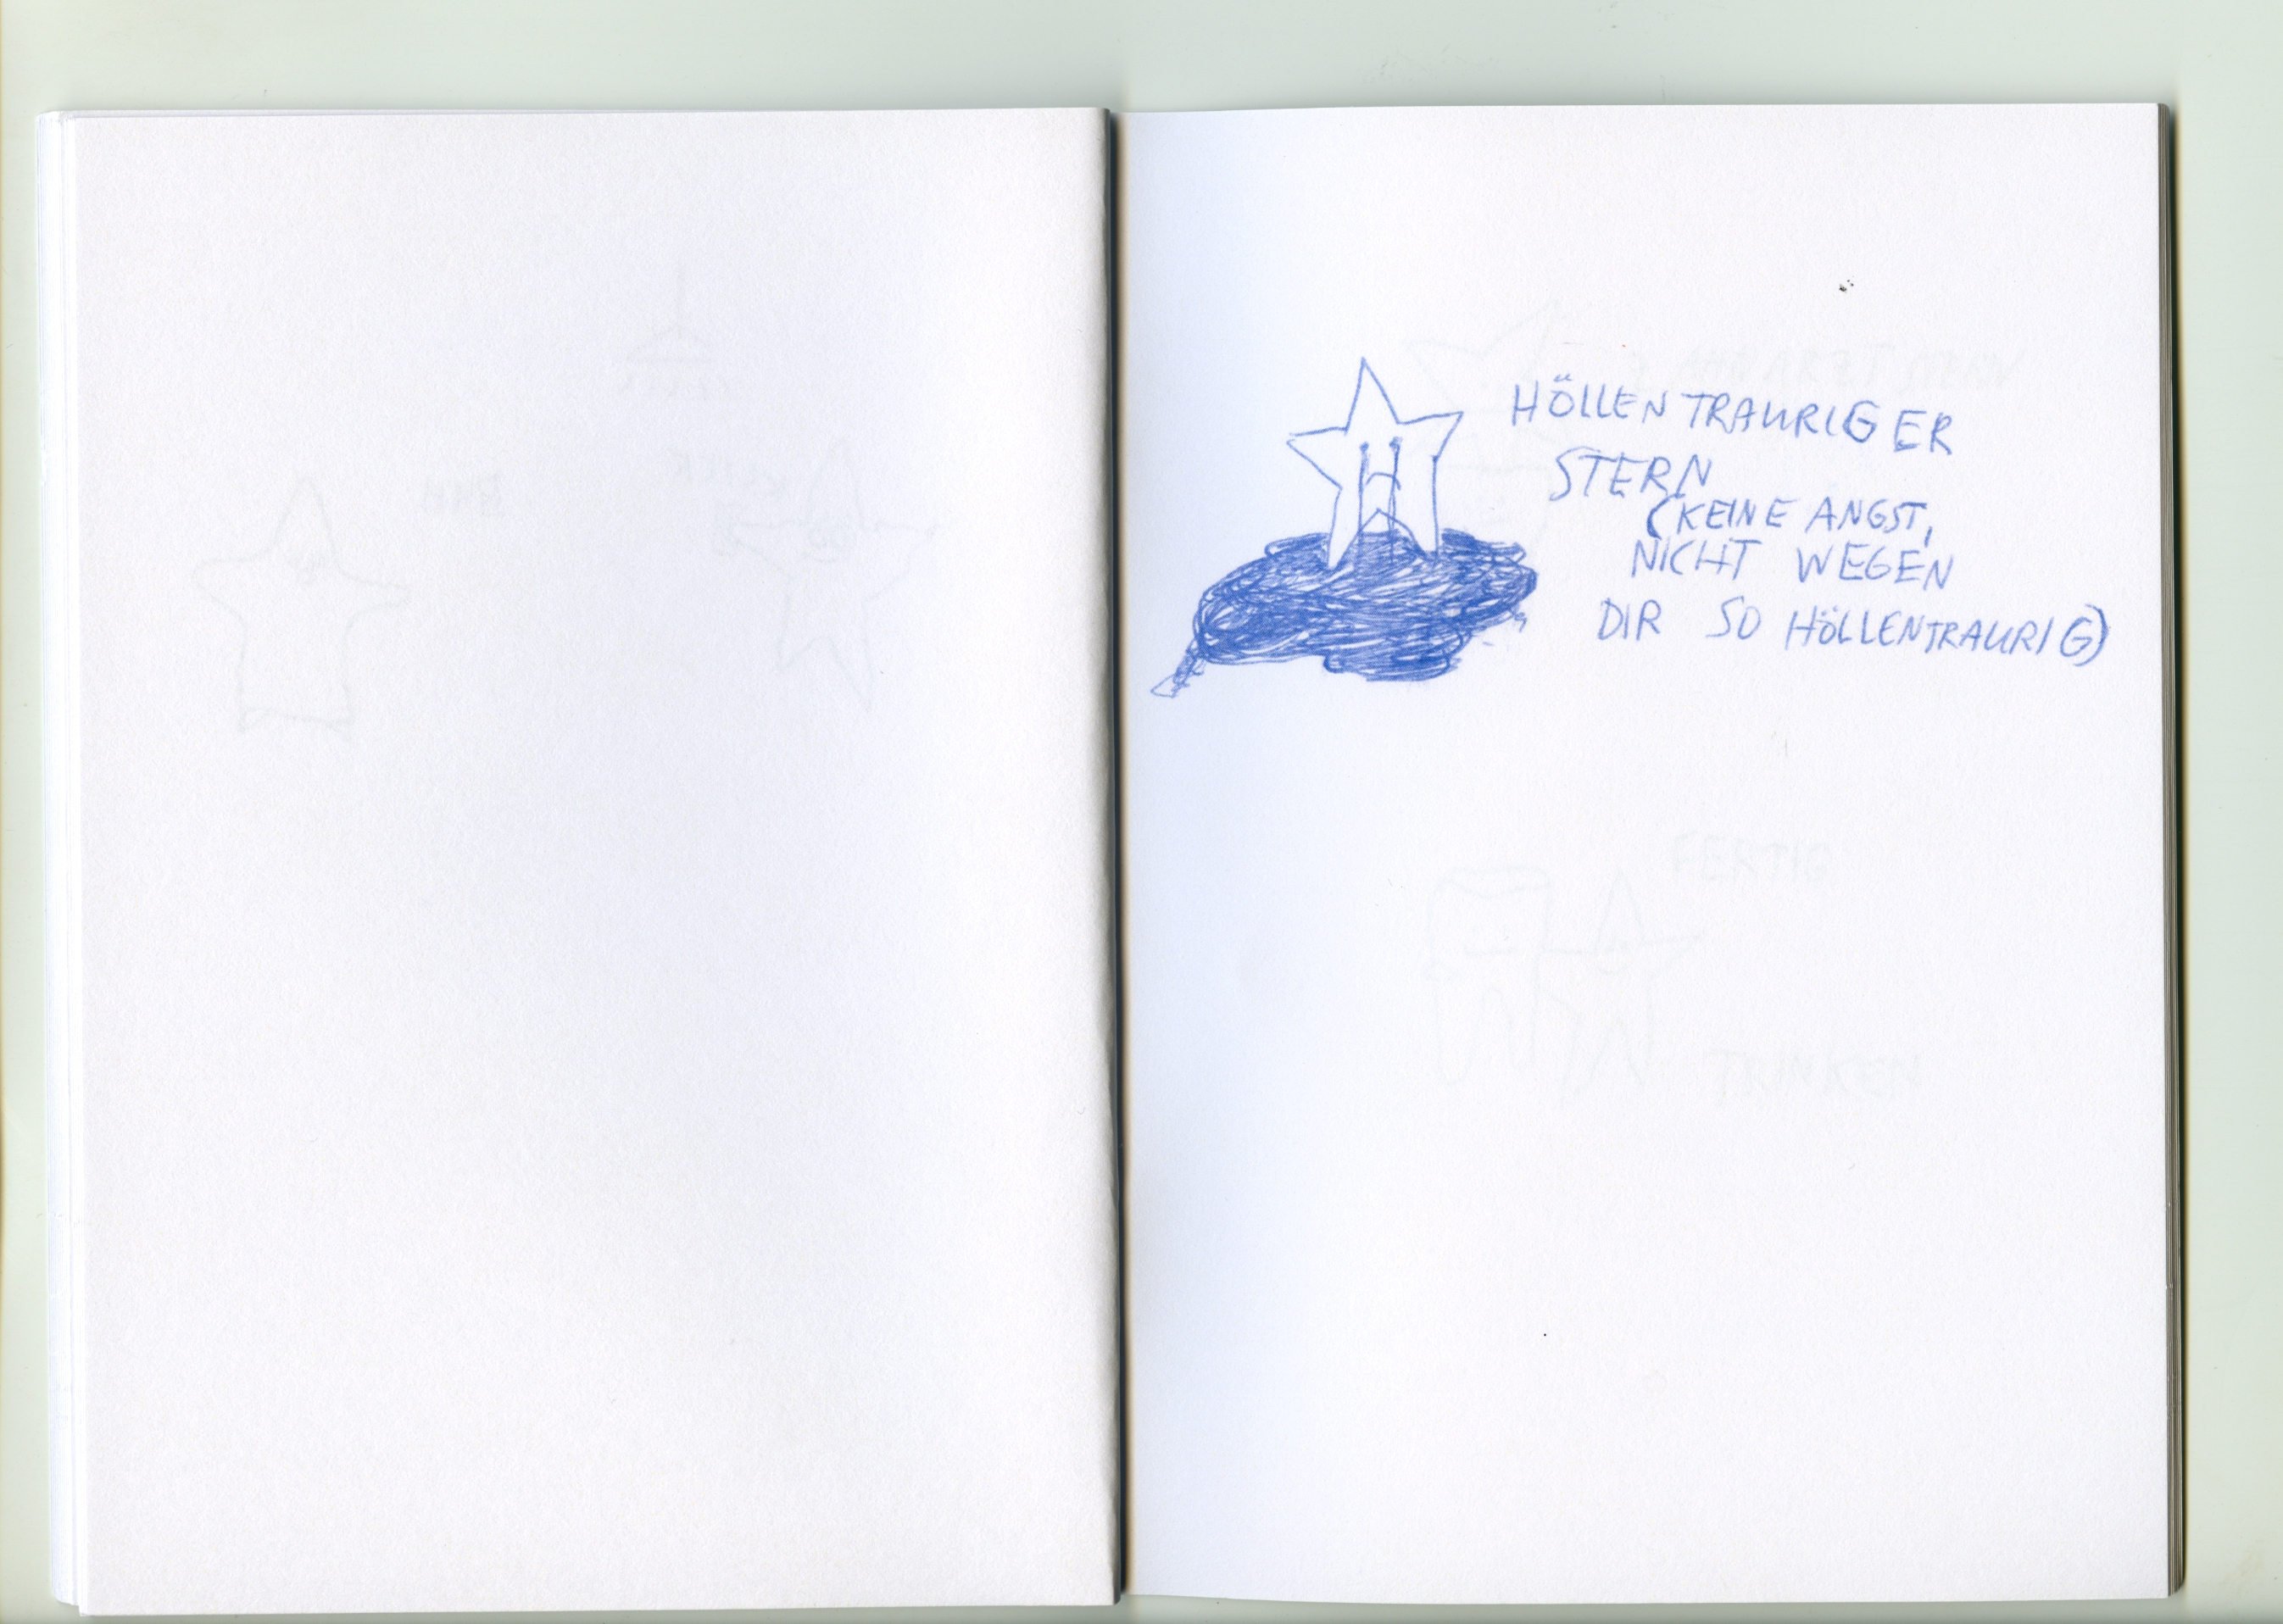 HÖLLENTRAURIGER
STERN
(KEINE ANGST,
NICHT WEGEN
DIR SO HÖLLENTRAURIG)
FERTIG
TRINKEN